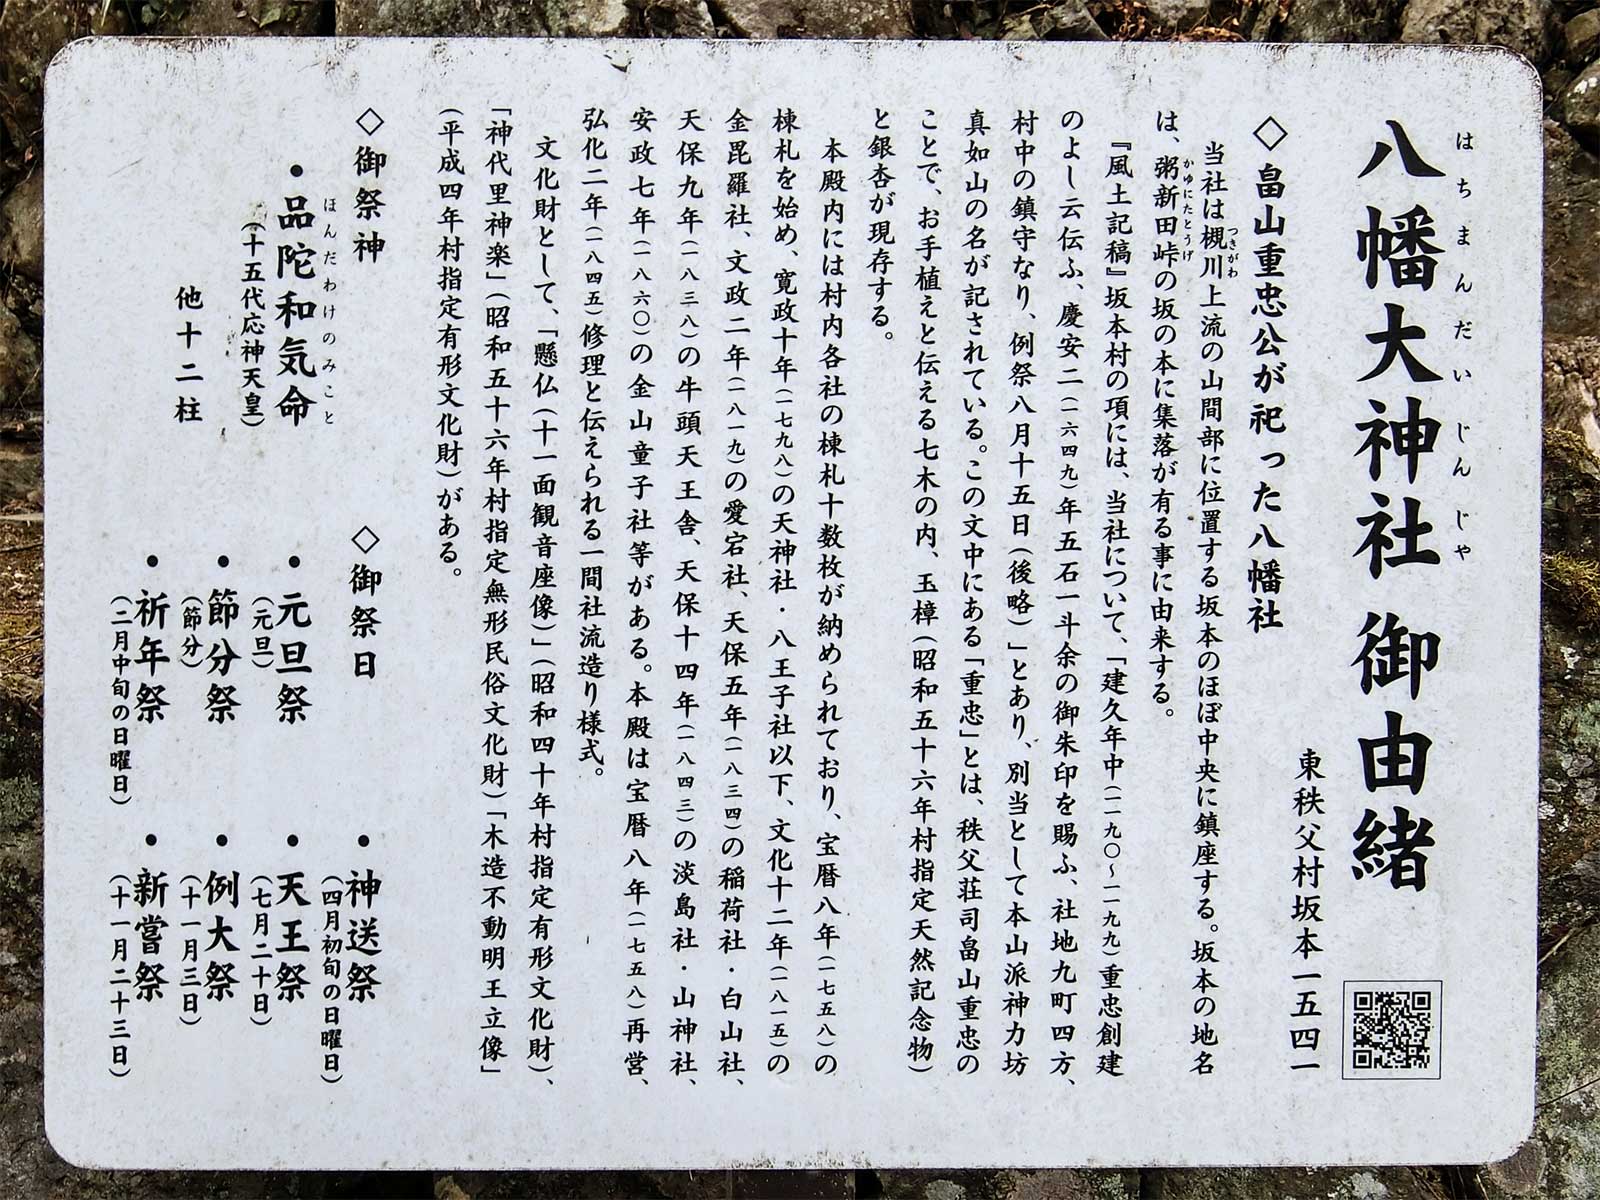 八幡大神社 御由緒
はちまんだいじんじゃ
東秩父村坂本一五四一
◇畠山重忠公が祀った八幡社
当社は槻川上流の山間部に位置する坂本のほぼ中央に鎮座する。坂本の地名
つきがわ
は、粥新田峠の坂の本に集落が有る事に由来する。
かゆにたとうげ
『風土記稿』坂本村の項には、当社について、「建久年中(一一九〇~一一九九)重忠創建
のよし云伝ふ、慶安二(一六四九)年五石一斗余の御朱印を賜ふ、社地九町四方、
村中の鎮守なり、例祭八月十五日(後略)」とあり、別当として本山派神力坊
真如山の名が記されている。この文中にある「重忠」とは、秩父荘司畠山重忠の
ことで、お手植えと伝える七木の内、玉樟(昭和五十六年村指定天然記念物)
と銀杏が現存する。
本殿内には村内各社の棟札十数枚が納められており、宝暦八年(一七五八)の
棟札を始め、寛政十年(一七九八)の天神社・八王子社以下、文化十二年(一八一五)の
金毘羅社、文政二年(一八一九)の愛宕社、天保五年(一八三四)の稲荷社・白山社、
天保九年(一八三八)の牛頭天王舎、天保十四年(一八四三)の淡島社・山神社、
安政七年(一八六〇)の金山童子社等がある。本殿は宝暦八年(一七五八)再営、
弘化二年(一八四五)修理と伝えられる一間社流造り様式。
文化財として、「懸仏(十一面観音座像)」(昭和四十年村指定有形文化財)、
「神代里神楽」(昭和五十六年村指定無形民俗文化財)「木造不動明王立像」
(平成四年村指定有形文化財)がある。
◇御祭神
・品陀和気命
ほんだわけのみこと
(十五代応神天皇)
他十二柱
◇御祭日
・元旦祭
(元旦)
・節分祭
(節分)
・祈年祭
(二月中旬の日曜日)
・神送祭
(四月初旬の日曜日)
・天王祭
(七月二十日)
・例大祭
(十一月三日)
・新嘗祭
(十一月二十三日)